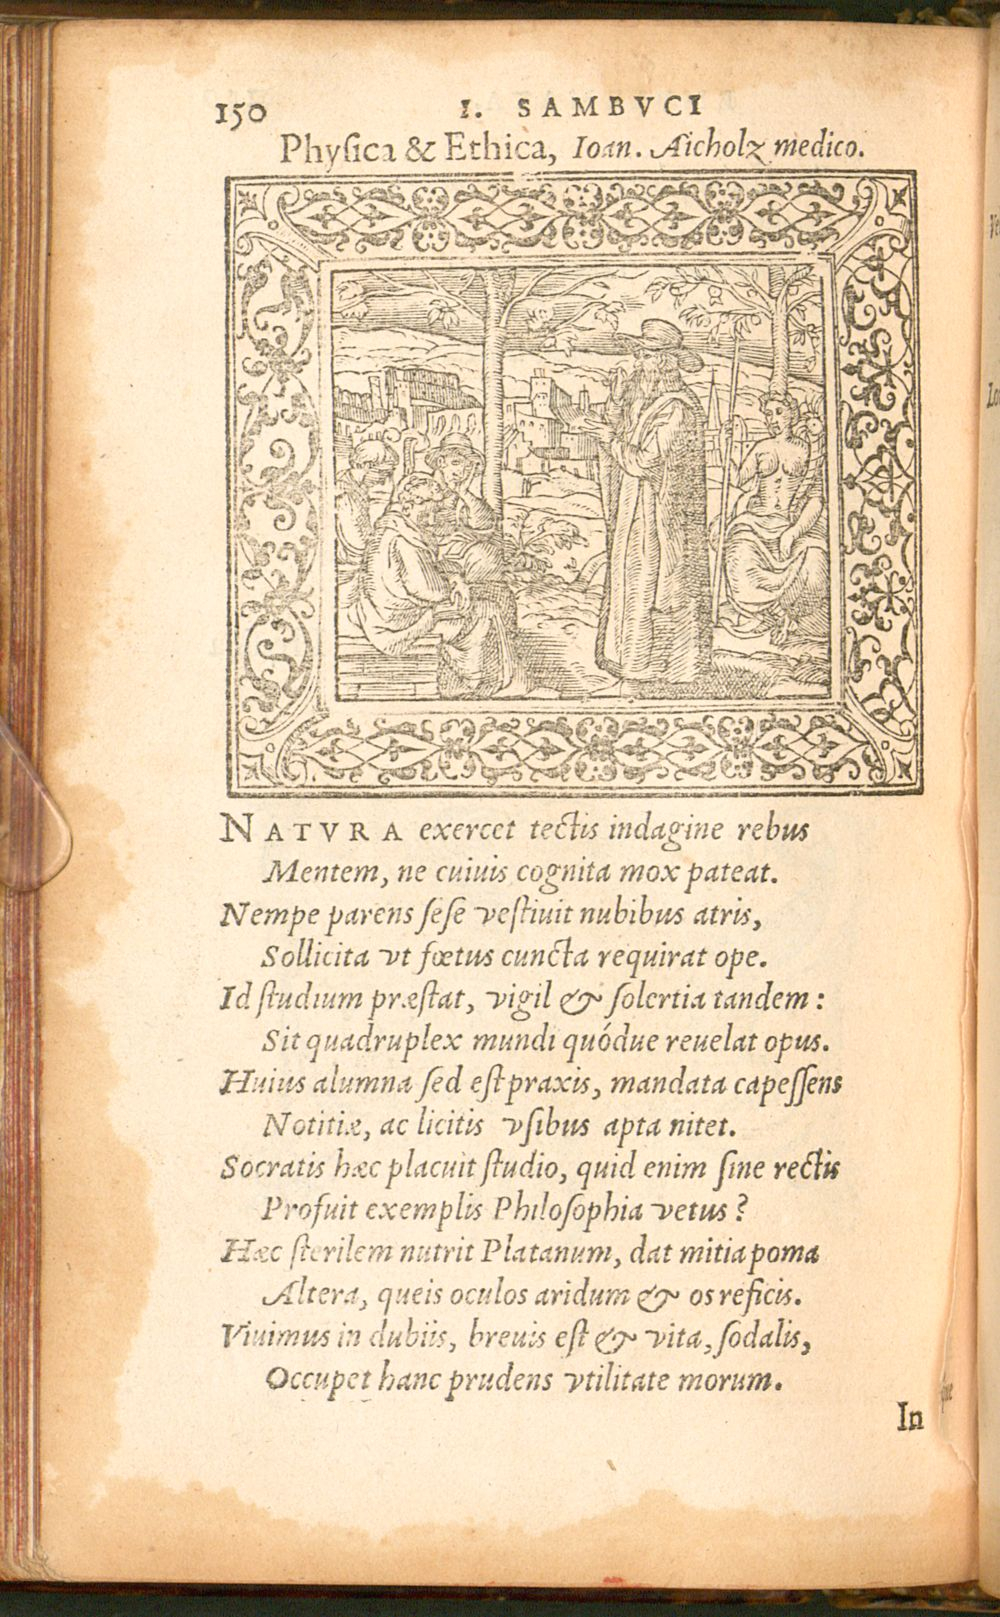 150 I. SAMBVCI
Phyſica & Ethica, Ioan. Aicholz medico.
NATVRA exercet tectis indagine rebus
Mentem, ne cuiuis cognita mox pateat.
Nempe parens ſeſe veſtiuit nubibus atris,
Sollicita vt fœtus cuncta requirat ope.
Id ſtudium præſtat, vigil & ſolertia tandem:
Sit quadruplex mundi quódue reuelat opus.
Huius alumna ſed eſt praxis, mandata capeſſens
Notitiæ, ac licitis vſibus apta nitet.
Socratis hæc placuit ſtudio, quid enim ſine rectis
Profuit exemplis Philoſophia vetus?
Hæc ſterilem nutrit Platanum, dat mitia poma
Altera, queis oculos aridum & os reficis.
Viuimus in dubiis, breuis eſt & vita, ſodalis,
Occupet hanc prudens vtilitate morum.
In